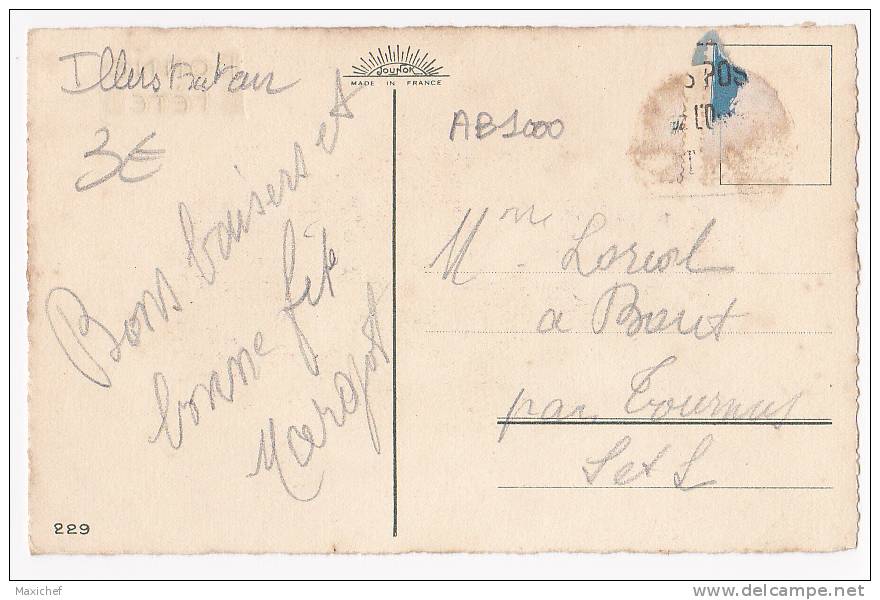 Illustrateur
3€
JOUNOK
MADE IN FRANCE
AB1000
S POS
L'O
Bons baisers et
bonne fête
Margot
Mme Loriol
à
par Tournus
S et L
229
Maxichef
www.delcampe.net